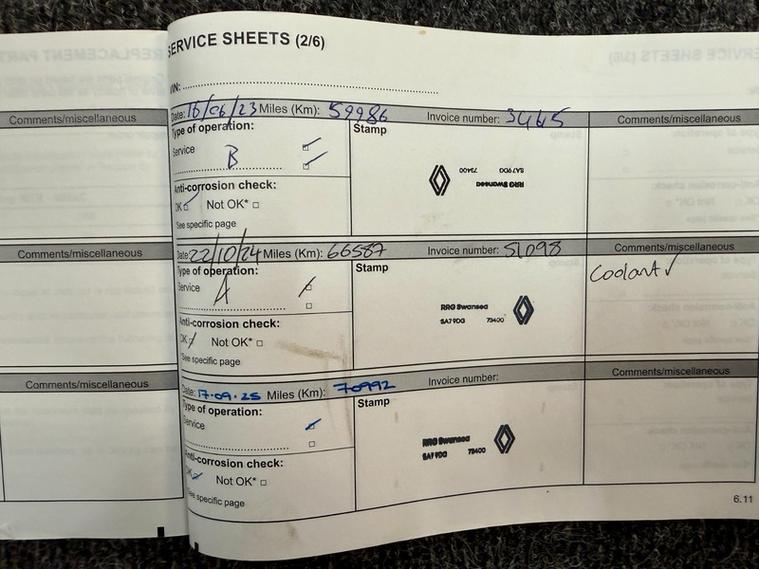 SERVICE SHEETS (2/6)
VIN:
Comments/miscellaneous
Date: 16/06/23 Miles (Km): 59986 Invoice number: 3465
Comments/miscellaneous
Type of operation:
Stamp
Service
B
73400 SA7 9DG
RRG Swansea
Anti-corrosion check:
OK Not OK*
See specific page
Comments/miscellaneous
Date: 22/10/24 Miles (Km): 66587 Invoice number: 51098
Comments/miscellaneous
Type of operation:
Stamp
Coolant ✓
Service
A
RRG Swansea
SA7 9DG 73400
Anti-corrosion check:
OK Not OK*
See specific page
Comments/miscellaneous
Date: 17.09.25 Miles (Km): 70992 Invoice number:
Comments/miscellaneous
Type of operation:
Stamp
Service
RRG Swansea
SA7 9DG 73400
Anti-corrosion check:
OK Not OK*
See specific page
6.11